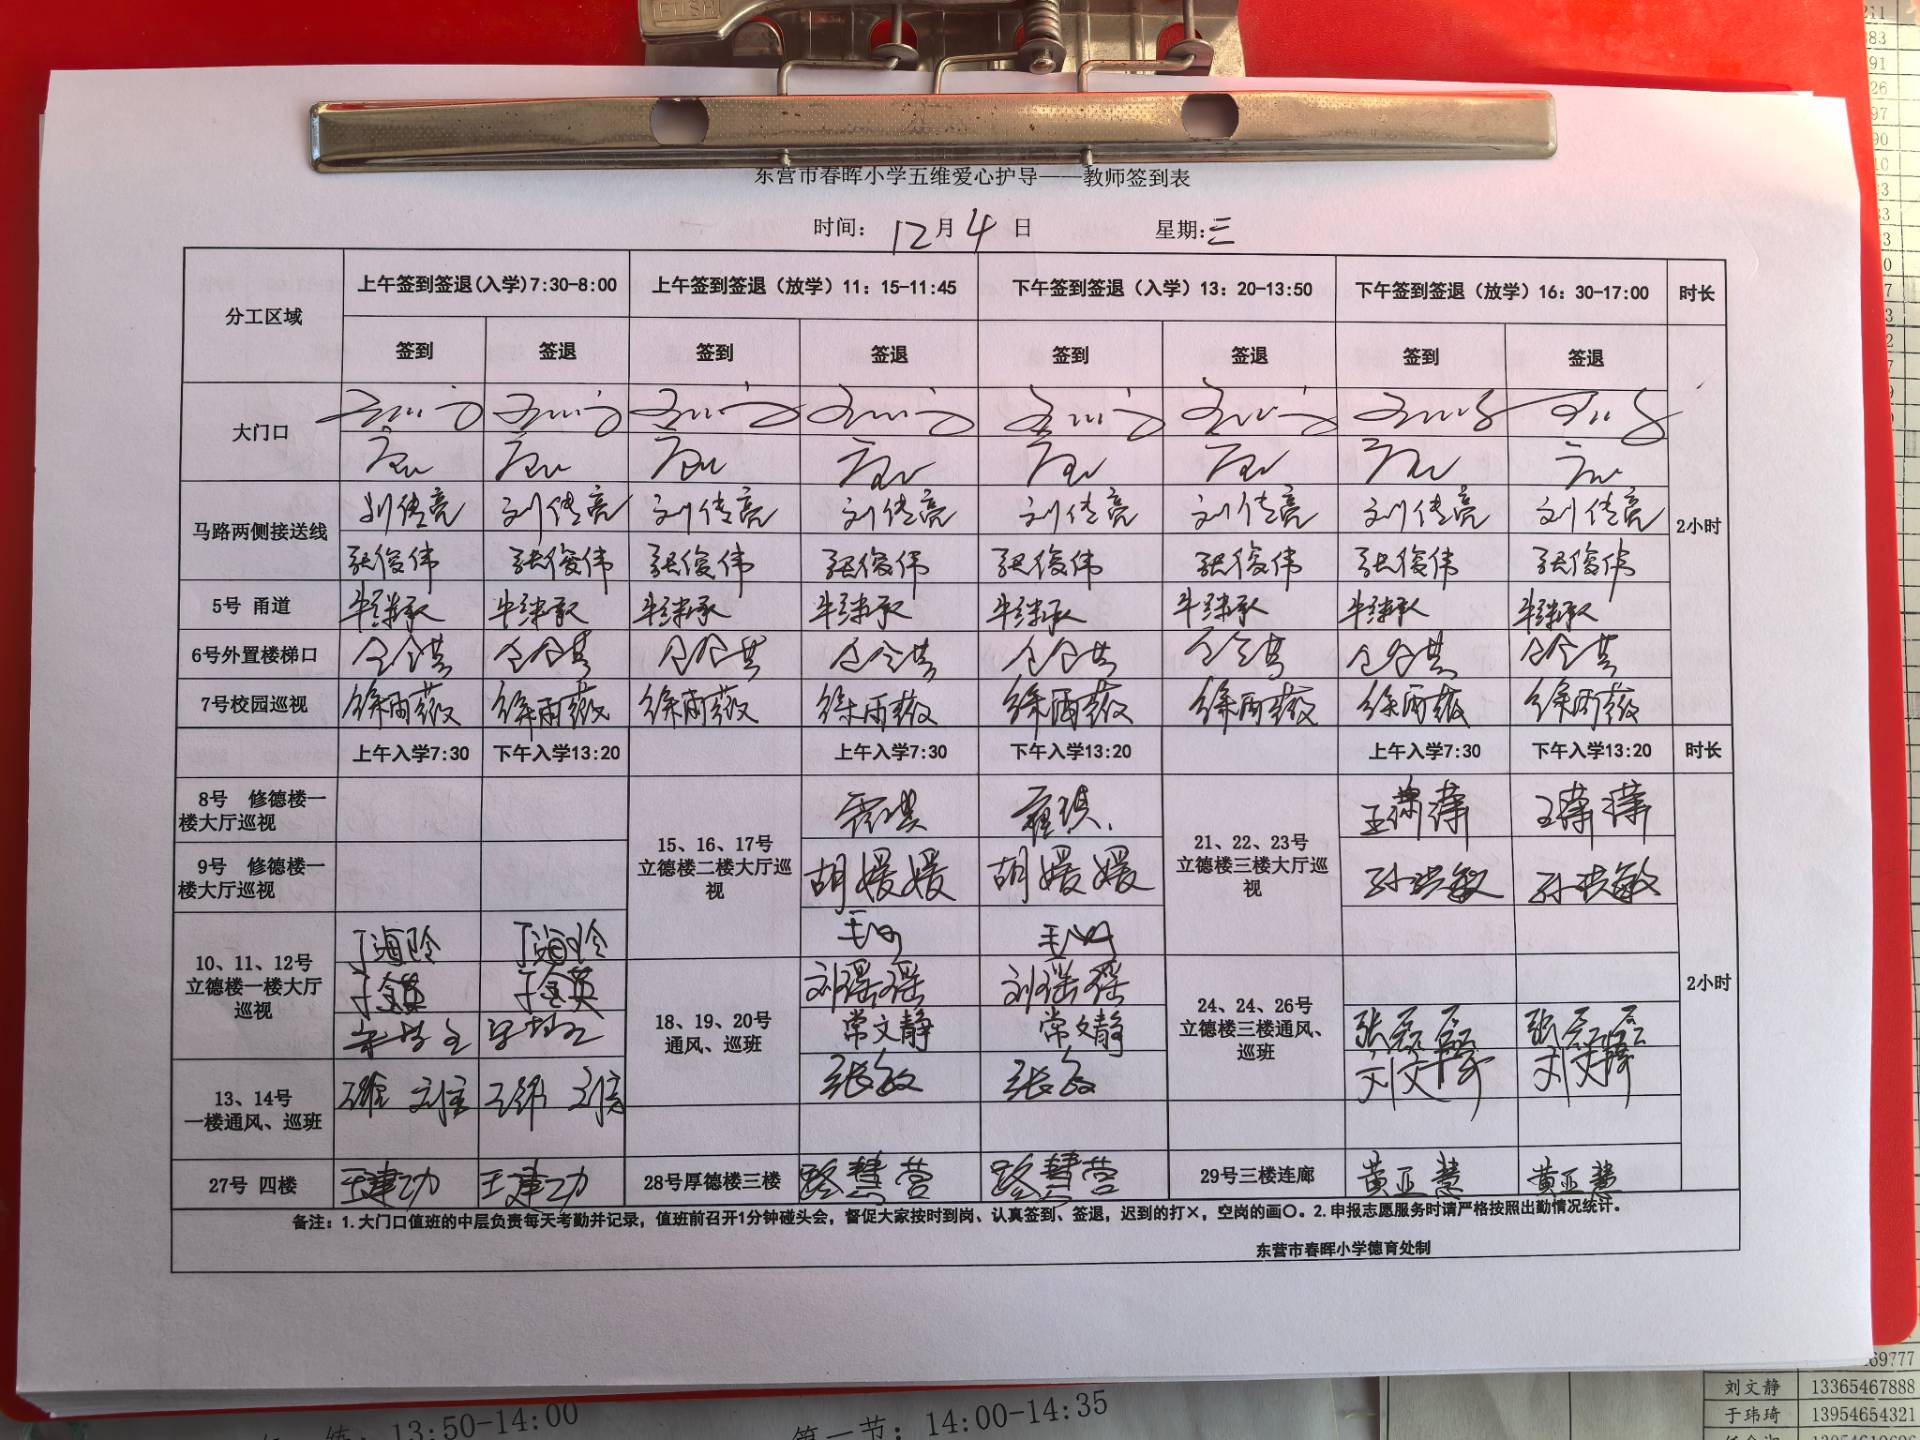 东营市春晖小学五维爱心护导——教师签到表
时间: 12月4日 星期:三
分工区域 上午签到签退(入学)7:30-8:00 上午签到签退（放学）11：15-11:45 下午签到签退（入学）13：20-13:50 下午签到签退（放学）16：30-17:00 时长
签到 签退 签到 签退 签到 签退 签到 签退
大门口
马路两侧接送线 刘传亮 刘传亮 刘传亮 刘传亮 刘传亮 刘传亮 刘传亮 刘传亮 2小时
张俊伟 张俊伟 张俊伟 张俊伟 张俊伟 张俊伟 张俊伟 张俊伟
5号 甬道 牛继承 牛继承 牛继承 牛继承 牛继承 牛继承 牛继承 牛继承
6号外置楼梯口
7号校园巡视 徐雨薇 徐雨薇 徐雨薇 徐雨薇 徐雨薇 徐雨薇 徐雨薇 徐雨薇
上午入学7:30 下午入学13:20 上午入学7:30 下午入学13:20 上午入学7:30 下午入学13:20 时长
8号 修德楼一
楼大厅巡视
9号 修德楼一
楼大厅巡视
15、16、17号
立德楼二楼大厅巡
视
胡媛媛 胡媛媛
21、22、23号
立德楼三楼大厅巡
视
孙洪敏 孙洪敏
10、11、12号
立德楼一楼大厅
巡视
丁海玲 丁海玲
于金英 于金英
18、19、20号
通风、巡班
刘瑶瑶 刘瑶瑶
常文静 常文静
张敏 张敏
24、24、26号
立德楼三楼通风、
巡班
张磊磊 张磊磊
刘文琦 刘文琦
2小时
13、14号
一楼通风、巡班
27号 四楼 王建功 王建功 28号厚德楼三楼 路慧营 路慧营 29号三楼连廊 黄亚慧 黄亚慧
备注：1.大门口值班的中层负责每天考勤并记录，值班前召开1分钟碰头会，督促大家按时到岗、认真签到、签退，迟到的打×，空岗的画〇。2.申报志愿服务时请严格按照出勤情况统计。
东营市春晖小学德育处制
69777
刘文静 13365467888
于玮琦 13954654321
13:50-14:00
第一节：14:00-14:35